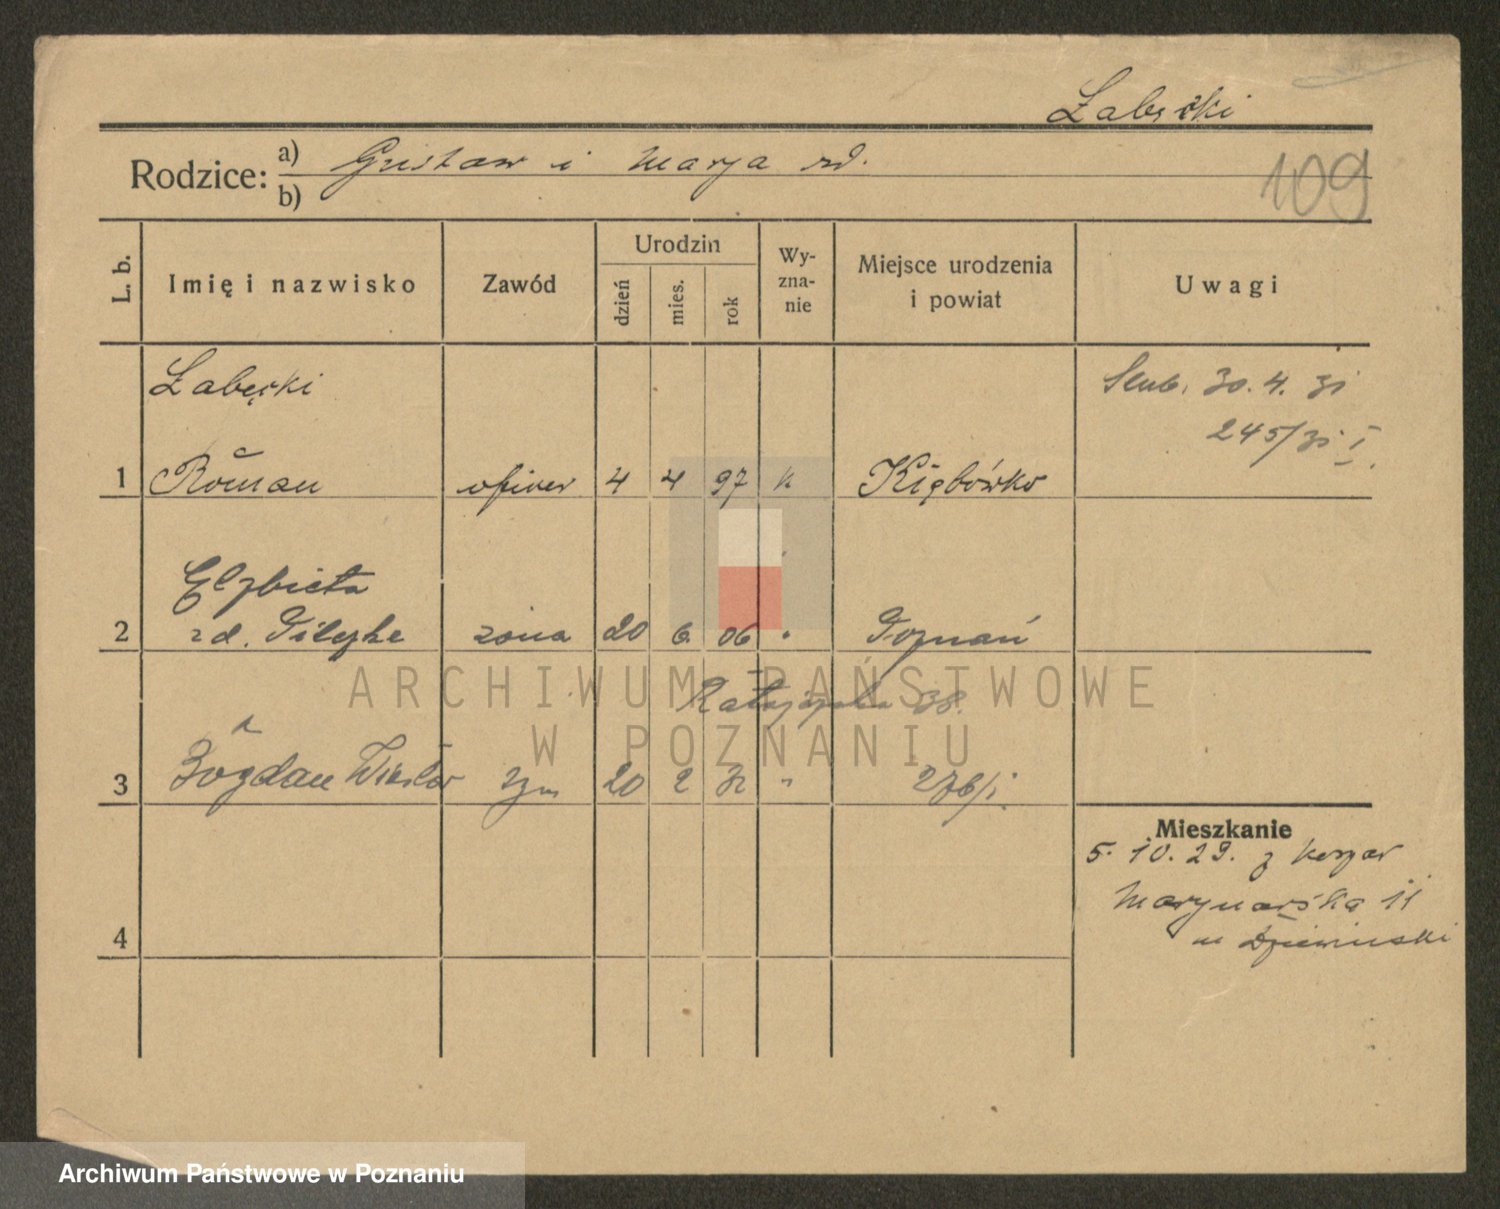 Łabęcki
Rodzice: a) Gustaw i Marja zd.
b)
109
L. b.
Imię i nazwisko
Zawód
Urodzin
dzień
mies.
rok
Wy-
zna-
nie
Miejsce urodzenia
i powiat
Uwagi
Łabęcki
Ślub. 30.4.31
245/31 I.
1 Roman oficer 4 4 97 k Kiębówko
Elzbieta
2 zd. żona 20 6. 06 " Poznań
Ratajczaka 38.
3 Bogdan Wiesław syn 20 2 32 " 276/I.
Mieszkanie
5. 10. 29. z koszar
Marynarska 11
m Dziewiński
4
ARCHIWUM PAŃSTWOWE
W POZNANIU
Archiwum Państwowe w Poznaniu